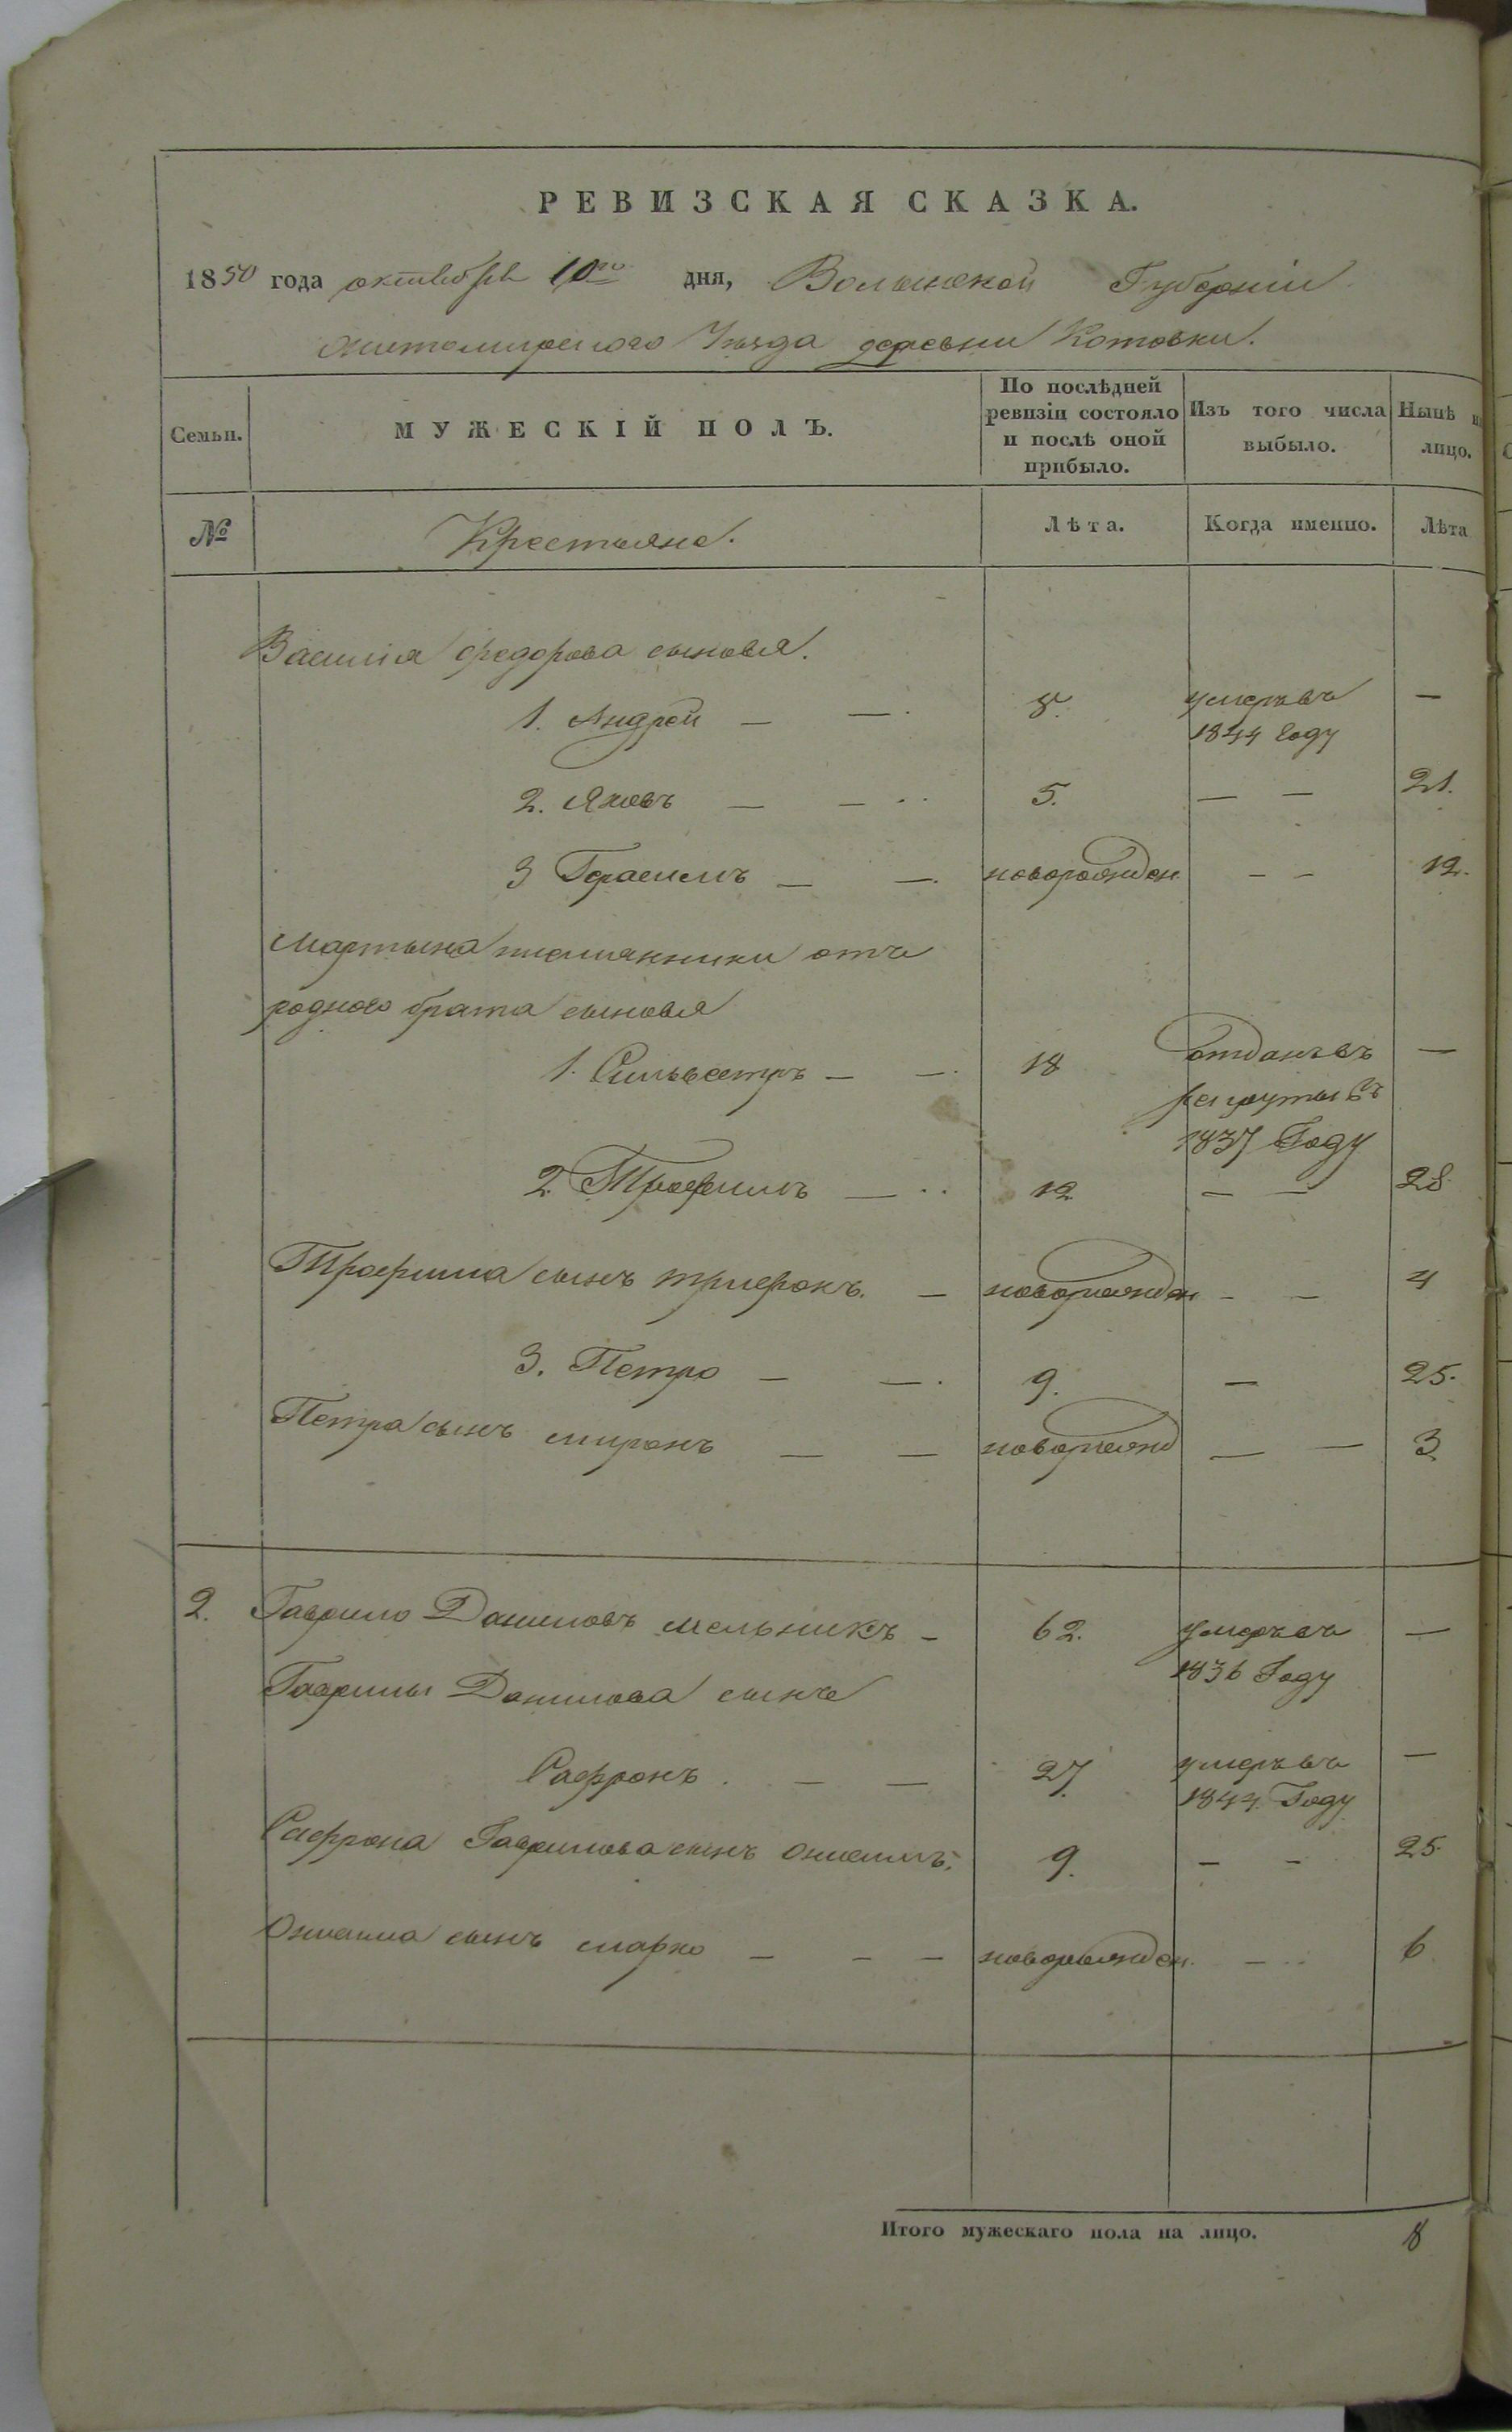 РЕВИЗСКАЯ СКАЗКА.
1850 года октября 10го дня, Волынской Губерніи
Житомирского Уезда деревни Котовки.
Семьи. МУЖЕСКІЙ ПОЛЪ. По послѣдней ревизіи состояло и послѣ оной прибыло. Изъ того числа выбыло. Нынѣ на лицо.
№ Крестьяне. Лѣта. Когда именно. Лѣта
Василія Федорова сыновья.
1. Андрей — —. 8. умеръ въ —
1844 Году
2. Яковъ — — .. 5. — — 21.
3 Герасимъ — —. новорожден — — 12.
Мартына племянники отъ
родного брата сыновья
1. Сильвестръ — —. 18 отданъ въ —
рекруты въ
1837 Году
2. Трофимъ — .. 12 — — 28.
Трофима сынъ Трифонъ. — новорожден — — 4
3. Петро — —. 9. — 25.
Петра сынъ Миронъ — — новорожд — — 3
2. Гаврило Даниловъ Мельникъ — 62. умеръ въ —
1836 Году
Гаврилы Данилова сынъ
Сафронъ . — — 27. умеръ въ —
1844 Году
Сафрона Гаврилова сынъ Онисимъ. 9. — — 25.
Онисима сынъ Марко — — — новорожден. — .. 6
Итого мужескаго пола на лицо. 8